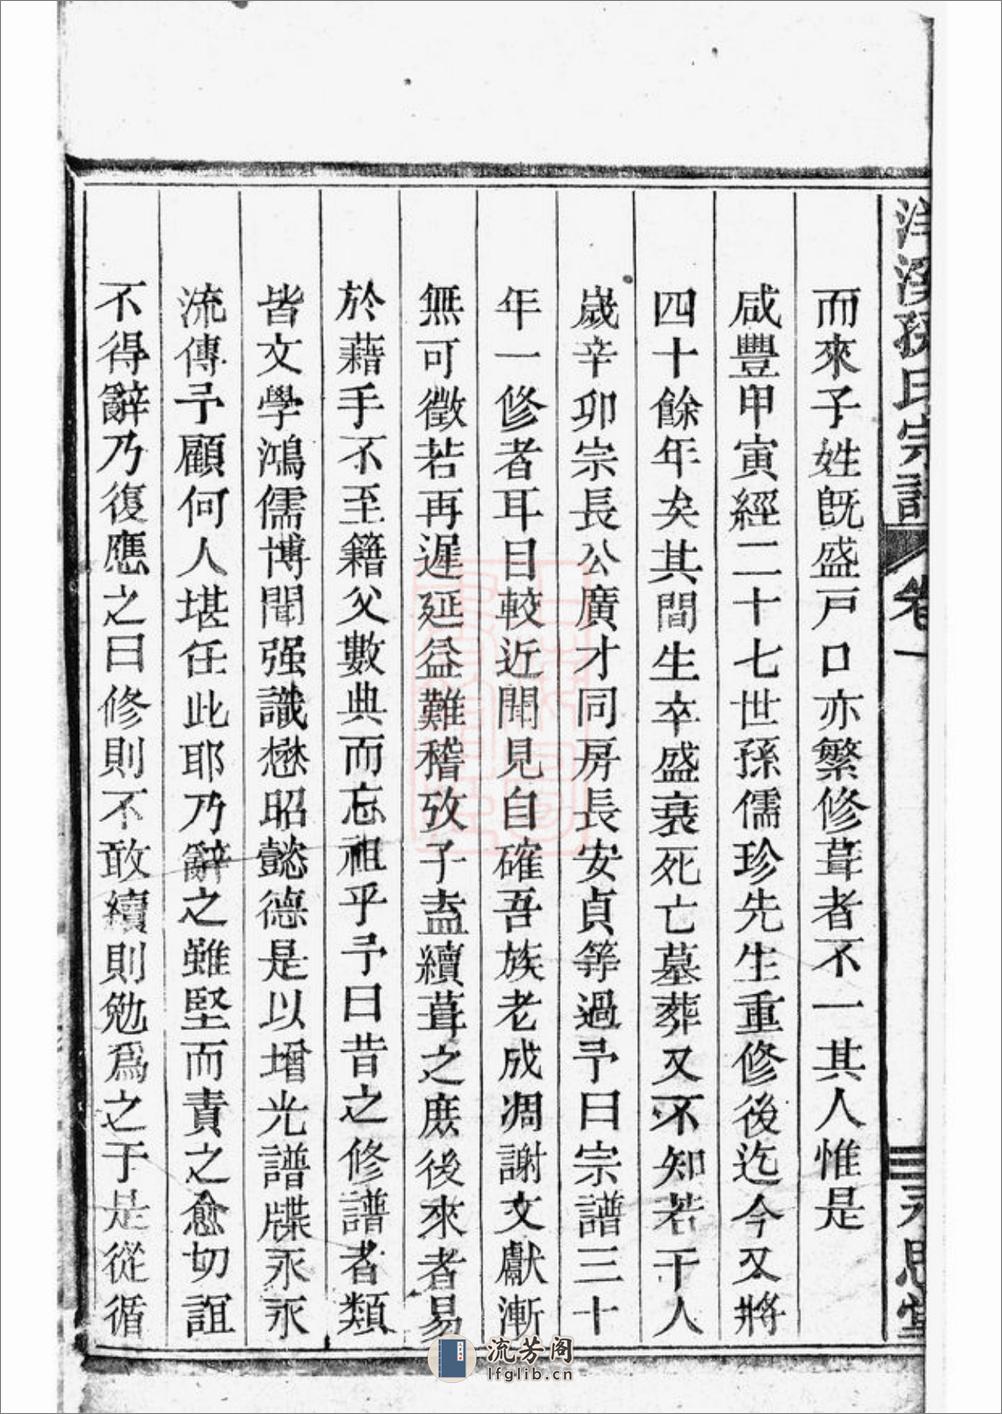 洋溪孫氏宗譜 卷一 永思堂
而來子姓既盛戸口亦繁修葺者不一其人惟是
咸豐甲寅經二十七世孫儒珍先生重修後迄今又將
四十餘年矣其間生卒盛衰死亡墓葬又不知若干人
歲辛卯宗長公廣才同房長安貞等過予曰宗譜三十
年一修者耳目較近聞見自確吾族老成凋謝文獻漸
無可徵若再遲延益難稽攷子盍續葺之庶後來者易
於藉手不至籍父數典而忘祖乎予曰昔之修譜者類
皆文學鴻儒博聞强識懋昭懿德是以增光譜牒永永
流傳予顧何人堪任此耶乃辭之雖堅而責之愈切誼
不得辭乃復應之曰修則不敢續則勉爲之于是從循
流芳阁
lfglib.cn